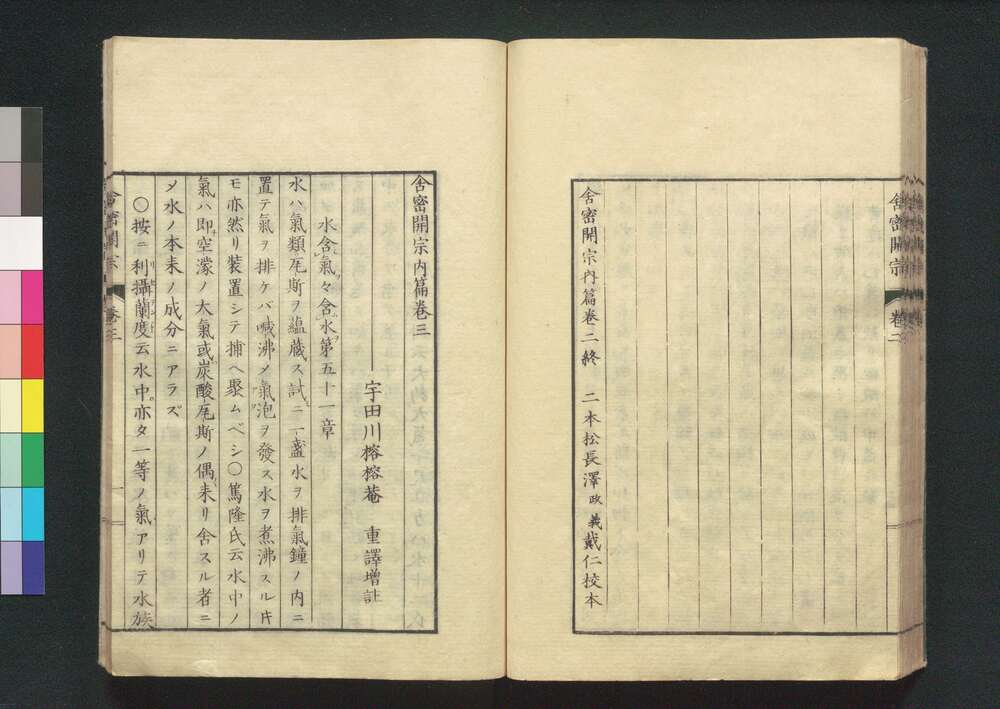 舍密開宗 卷二
舍密開宗内篇卷二終 二本松長澤政義戴仁校本
舍密開宗内篇卷三
宇田川榕榕菴 重譯增註
水含氣々含水第五十一章
水ハ氣類瓦斯ヲ蘊藏ス試ニ一盞水ヲ排氣鐘ノ内ニ
置テ氣ヲ排ケバ喊沸メ氣泡ヲ發ス水ヲ煮沸スル𪜈
モ亦然リ裝置シテ捕ヘ聚ムベシ〇篤隆氏云水中ノ
氣ハ即空濛ノ大氣或炭酸瓦斯ノ偶來リ舍スル者ニ
メ水ノ本来ノ成分ニアラズ
〇按ニ利攝蘭度云水中亦タ一等ノ氣アリテ水族
舍密開宗 卷三 一